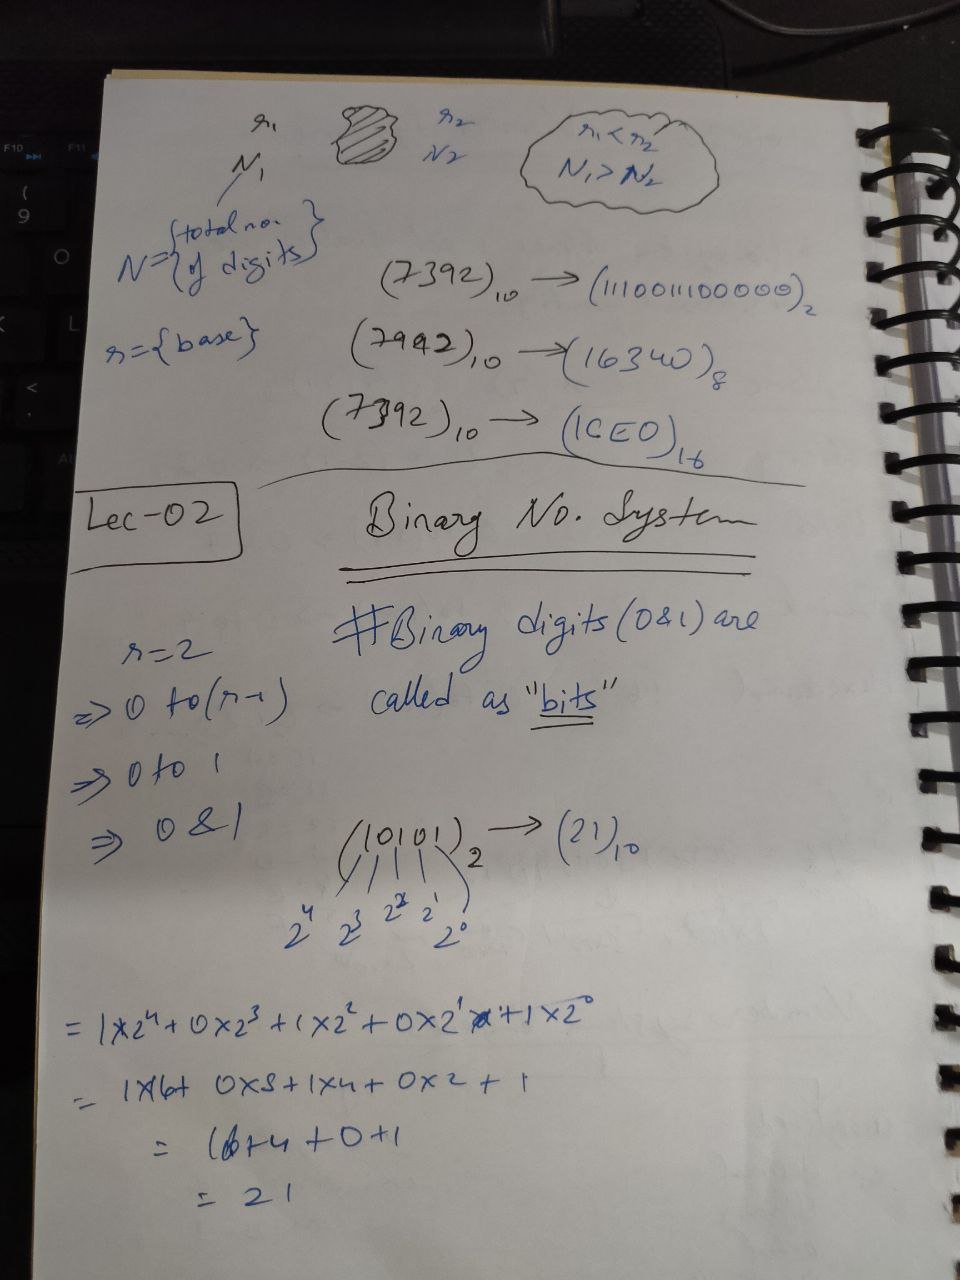 r₁ r₂ r₁ < r₂
N₁ N₂ N₁ > N₂
N = {total no. of digits}
r = {base}
(7392)₁₀ → (1110011100000)₂
(7992)₁₀ → (16340)₈
(7392)₁₀ → (1CE0)₁₆
Lec-02
Binary No. System
r=2
⇒ 0 to (r-1)
⇒ 0 to 1
⇒ 0 & 1
#Binary digits (0&1) are
called as "bits"
(10101)₂ → (21)₁₀
2⁴ 2³ 2² 2¹ 2⁰
= 1×2⁴ + 0×2³ + 1×2² + 0×2¹ + 1×2⁰
= 1×16+ 0×8+1×4+ 0×2 + 1
= 16+4+0+1
= 21